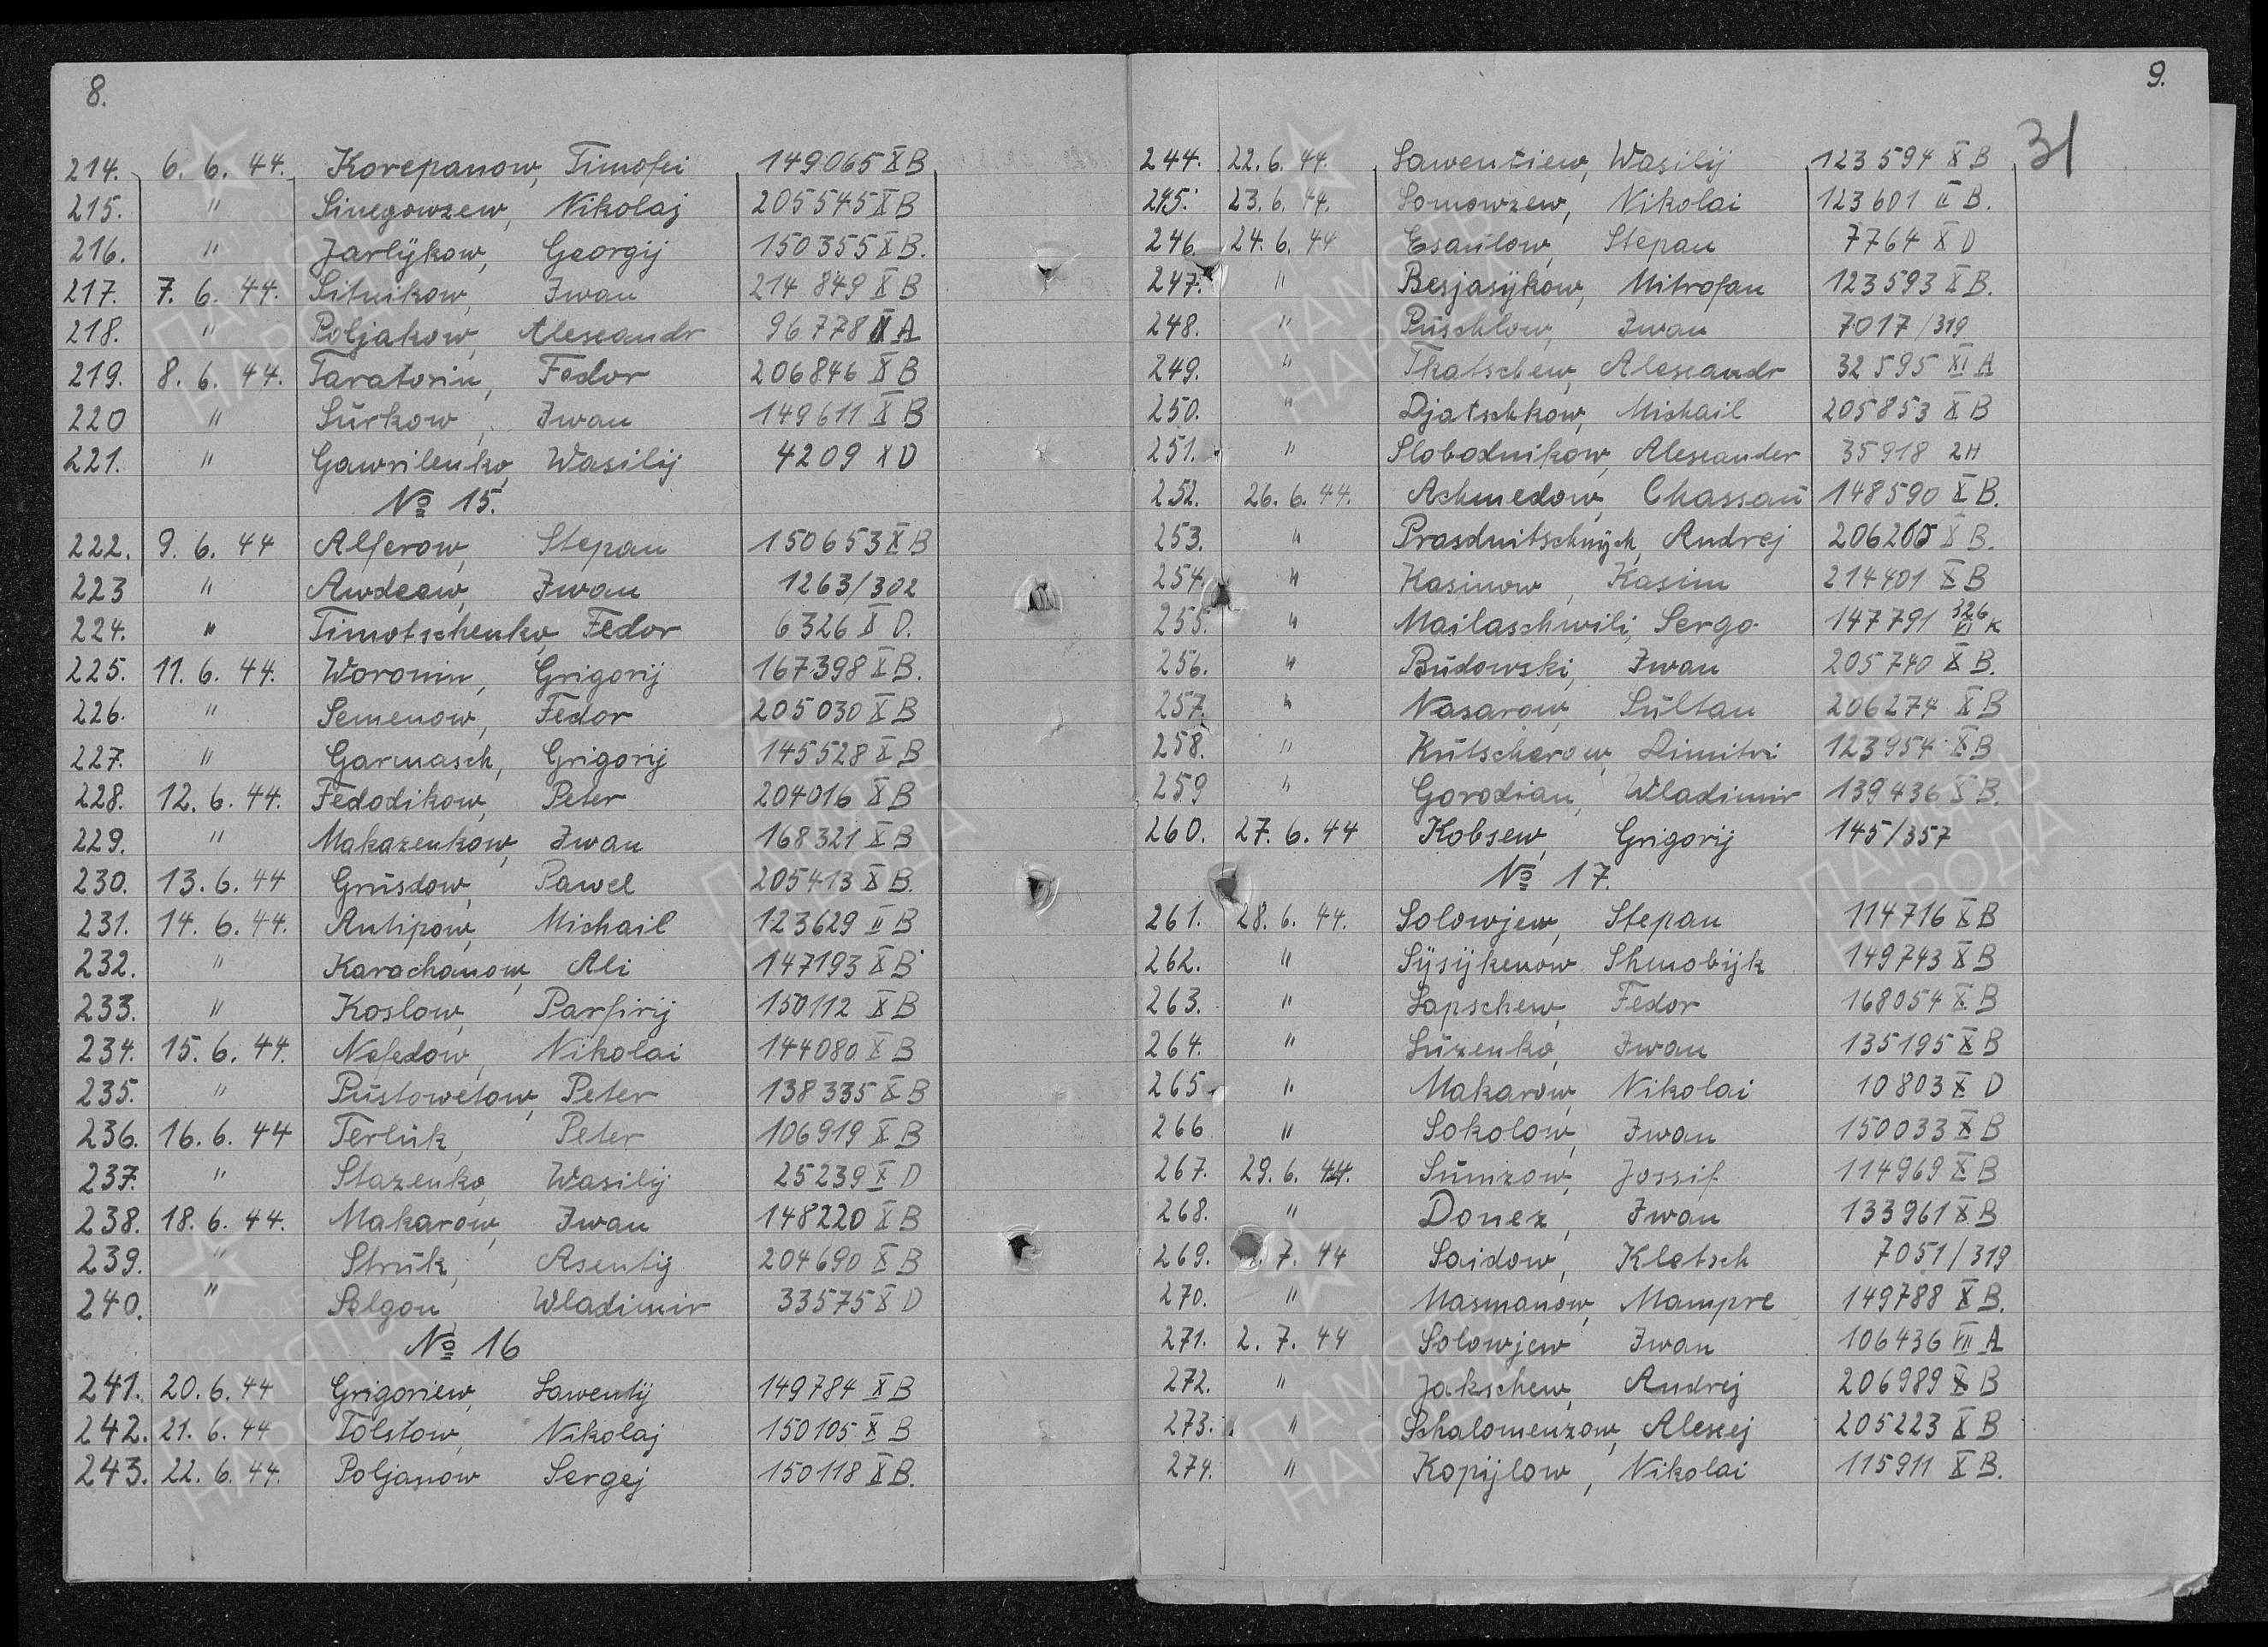 8.
214. 6. 6. 44. Korepanow, Timofei 149065 X B
215. " Sinegowzew, Nikolaj 205545 X B
216. " Jarlÿkow, Georgij 150355 X B.
217. 7. 6. 44. Sitnikow, Iwan 214 849 X B
218. " Poljakow, Alexandr 96778 II A
219. 8. 6. 44. Taratorin, Fedor 206846 X B
220 " Surkow, Iwan 149611 X B
221. " Gawrilenko, Wasilij 4209 X D
№ 15.
222. 9. 6. 44 Alferow, Stepan 150653 X B
223 " Awdeew, Iwan 1263/302
224. " Timotschenko, Fedor 6326 X D.
225. 11. 6. 44. Woronin, Grigorij 167398 X B.
226. " Semenow, Fedor 205030 X B
227. " Garmasch, Grigorij 145528 X B
228. 12. 6. 44. Fedodikow, Peter 204016 X B
229. " Makazenkow, Iwan 168321 X B
230. 13. 6. 44 Grusdow, Pawel 205413 X B.
231. 14. 6. 44. Antipow, Michail 123629 II B
232. " Karachanow, Ali 147193 X B
233. " Koslow, Parfirij 150112 X B
234. 15. 6. 44. Nefedow, Nikolai 144080 X B
235. " Pustowetow, Peter 138335 X B
236. 16. 6. 44 Terluk, Peter 106919 X B
237. " Stazenko, Wasilij 25239 X D
238. 18. 6. 44. Makarow, Iwan 148220 X B
239. " Struk, Asentij 204690 X B
240. " Wladimir 33575 X D
№ 16
241. 20. 6. 44 Grigoriew, Lawentij 149784 X B
242. 21. 6. 44 Tolstow, Nikolaj 150105 X B
243. 22. 6. 44. Poljanow Sergej 150118 X B.
9.
31
244. 22. 6. 44. Lawentiew, Wasilij 123594 X B
245. 23. 6. 44. Somowzew, Nikolai 123601 II B.
246. 24. 6. 44 Esaulow, Stepan 7764 X D
247. " Besjasÿkow, Mitrofan 123593 X B.
248. " Puschlow, Iwan 7017/319
249. " Tkatschew, Alexandr 32595 XI A
250. " Djatschkow, Michail 205853 X B
251. " Slobodnikow, Alexander 35918 2H
252. 26. 6. 44. Achmedow, Chassan 148590 X B.
253. " Prasdnitschnÿch, Andrej X B.
254. " Kasimow, Kasim 214401 X B
255. " Mailaschwili, Sergo 147791 326 VI K
256. " Budowski, Iwan 205740 X B.
257. " Nasarow, Sultan 206274 X B
258. " Kutscherow, Dimitri 123954 X B
259 " Gorodian, Wladimir 139436 X B.
260. 27. 6. 44 Kobsew, Grigorij 145/357
№ 17.
261. 28. 6. 44. Solowjew, Stepan 114716 X B
262. " Sÿsÿkenow Shmobÿk 149743 X B
263. " Lapschew, Fedor 168054 X B
264. " Luzenko, Iwan 135195 X B
265. " Makarow, Nikolai 10803 X D
266 " Sokolow, Iwan 150033 X B
267. 29. 6. 44. Sunizow, Jossif 114969 X B
268. " Donez, Iwan 133961 X B
269. 7. 44 Saidow, Kletsch 7051/319
270. " Masmanow, Mampre 149788 X B.
271. 2. 7. 44 Solowjew Iwan 106436 VII A
272. " Jakschew, Andrej 206989 X B
273. " Schalomenzow, Alexej 205223 X B
274. " Kopijlow, Nikolai 115911 X B.
ПАМЯТЬ
НАРОДА